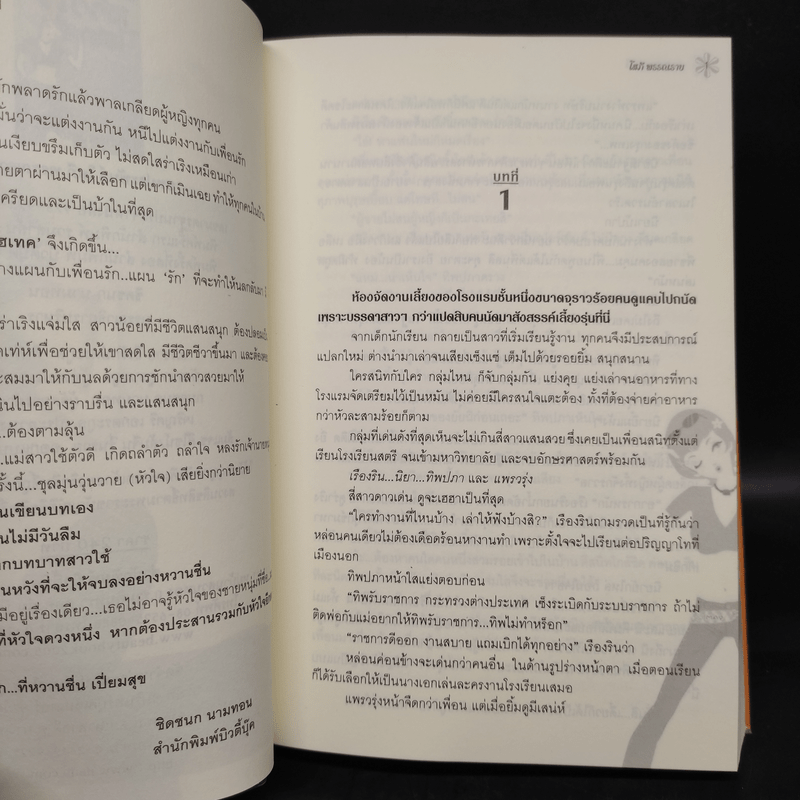 รักพลาดรักแล้วพาลเกลียดผู้หญิงทุกคน
มั่นว่าจะแต่งงานกัน หนีไปแต่งงานกับเพื่อนรัก
นเงียบขรึมเก็บตัว ไม่สดใสร่าเริงเหมือนเก่า
ายตาผ่านมาให้เลือก แต่เขาก็เมินเฉย ทำให้ทุกคนในบ้าน
ครียดและเป็นบ้าในที่สุด
ฮเทค’ จึงเกิดขึ้น...
างแผนกับเพื่อนรัก..แผน ‘รัก’ ที่จะทำให้นลกลับมา
ร่าเริงแจ่มใส สาวน้อยที่มีชีวิตแสนสนุก ต้องปลอม
ดเท่ห์เพื่อช่วยให้เขาสดใส มีชีวิตชีวาขึ้นมา และต้อง
ะสมมาให้กับนลด้วยการชักนำสาวสวยมาให้
นินไปอย่างราบรื่น และแสนสนุก
...ต้องตามลุ้น
...แม่สาวใช้ตัวดี เกิดถลำตัว ถลำใจ หลงรักเจ้านาย
รั้งนี้...ชุลมุนวุ่นวาย (หัวใจ) เสียยิ่งกว่านิยาย
นเขียนบทเอง
นไม่มีวันลืม
ากบทบาทสาวใช้
นหวังที่จะให้จบลงอย่างหวานชื่น
มีอยู่เรื่องเดียว...เธอไม่อาจรู้หัวใจของชายหนุ่มที่ชื่อ
ที่หัวใจดวงหนึ่ง หากต้องประสานรวมกับหัวใจอีก
ก...ที่หวานชื่น เปี่ยมสุข
ชิดชนก นามทอน
สำนักพิมพ์บิวตี้บุ๊ค
โสภี พรรณราย
1
บทที่
1
ห้องจัดงานเลี้ยงของโรงแรมชั้นหนึ่งขนาดจุราวร้อยคนดูแคบไปถนัด
เพราะบรรดาสาวๆ กว่าแปดสิบคนนัดมาสังสรรค์เลี้ยงรุ่นที่นี่
จากเด็กนักเรียน กลายเป็นสาวที่เริ่มเรียนรู้งาน ทุกคนจึงมีประสบการณ์
แปลกใหม่ ต่างนำมาเล่าจนเสียงเซ็งแซ่ เต็มไปด้วยรอยยิ้ม สนุกสนาน
ใครสนิทกับใคร กลุ่มไหน ก็จับกลุ่มกัน แย่งคุย แย่งเล่าจนอาหารที่ทาง
โรงแรมจัดเตรียมไว้เป็นหมัน ไม่ค่อยมีใครสนใจแตะต้อง ทั้งที่ต้องจ่ายค่าอาหาร
กว่าหัวละสามร้อยก็ตาม
กลุ่มที่เด่นดังที่สุดเห็นจะไม่เกินสี่สาวแสนสวย ซึ่งเคยเป็นเพื่อนสนิทตั้งแต่
เรียนโรงเรียนสตรี จนเข้ามหาวิทยาลัย และจบอักษรศาสตร์พร้อมกัน
เรืองริน...นิยา...ทิพปภา และ แพรวรุ่ง
สี่สาวดาวเด่น ดูจะเฮฮาเป็นที่สุด
“ใครทำงานที่ไหนบ้าง เล่าให้ฟังบ้างสิ?” เรืองรินถามรวดเป็นที่รู้กันว่า
หล่อนคนเดียวไม่ต้องเดือดร้อนหางานทำ เพราะตั้งใจจะไปเรียนต่อปริญญาโทที่
เมืองนอก
ทิพปภาหน้าใสแย่งตอบก่อน
“ทิพรับราชการ กระทรวงต่างประเทศ เซ็งระเบิดกับระบบราชการ ถ้าไม่
ติดพ่อกับแม่อยากให้ทิพรับราชการ...ทิพไม่ทำหร็อก”
“ราชการดีออก งานสบาย แถมเบิกได้ทุกอย่าง” เรืองรินว่า
หล่อนค่อนข้างจะเด่นกว่าคนอื่น ในด้านรูปร่างหน้าตา เมื่อตอนเรียน
ก็ได้รับเลือกให้เป็นนางเอกเล่นละครงานโรงเรียนเสมอ
แพรวรุ่งหน้าจืดกว่าเพื่อน แต่เมื่อยิ้มดูมีเสน่ห์